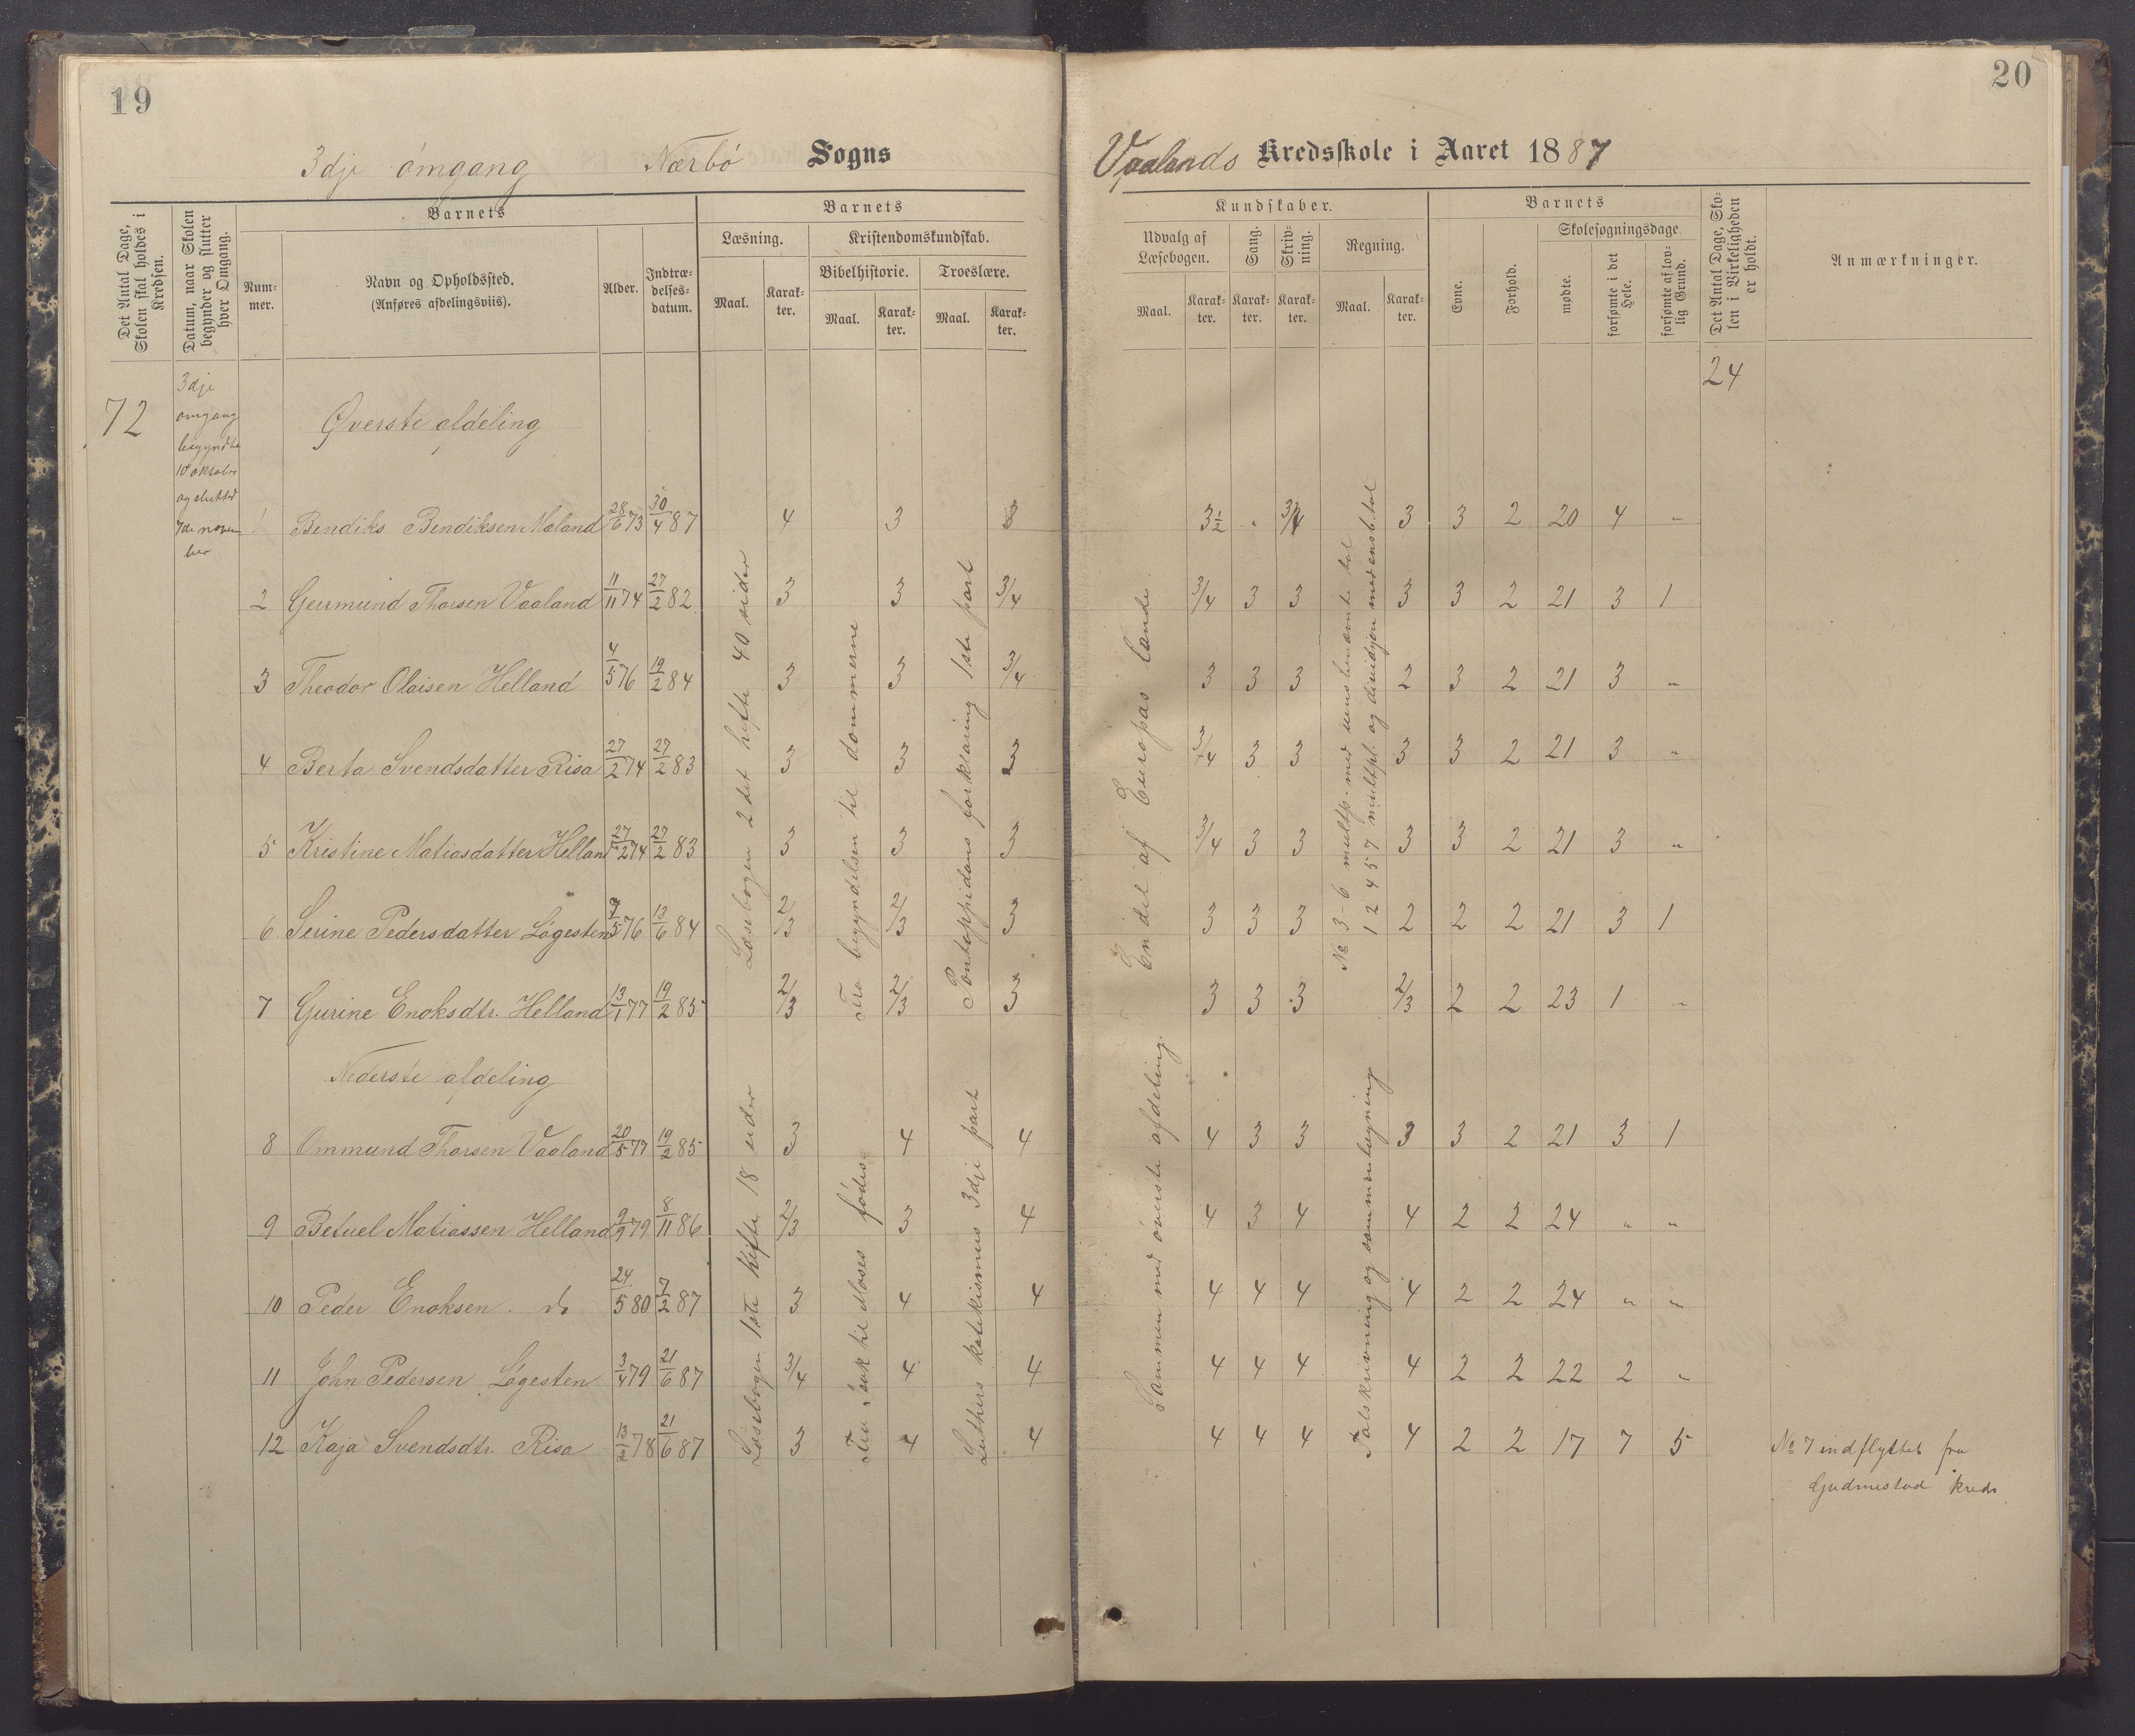 19
3dje omgang Nærbö Sogns
Det Antal Dage, Skolen skal holdes i Kredsen.
Datum, naar Skolen begynder og slutter hver Omgang.
Barnets
Nummer.
Navn og Opholdssted.
(Anføres afdelingsviis).
Alder.
Indtrædelsesdatum.
Barnets
Læsning.
Kristendomskundskab.
Bibelhistorie.
Troeslære.
Maal.
Karakter.
Maal.
Karakter.
Maal.
Karakter.
72
3dje
omgang
begyndte
10 oktober
og sluttet
7de novem
ber
Øverste afdeling
1 Bendiks Bendiksen Næland 28/6 73 30/4 87 4 3 3
2 Geirmund Thorsen Vaaland 11/11 74 27/2 82 3 3 3/4
3 Theodor Olaisen Helland 4/5 76 19/2 84 3 3 3/4
4 Berta Svendsdatter Risa 27/2 74 27/2 83 3 3 3
5 Kristine Matiasdatter Helland 27/2 74 27/2 83 3 3 3
6 Serine Pedersdatter Lögesten 9/5 76 13/6 84 2/3 2/3 3
7 Gurine Enoksdtr. Helland 13/1 77 19/2 85 2/3 2/3 3
Læsebogen 2det hefte 40 sider
Fra begyndelsen til dommerne
Pontoppidans forklaring 1ste part
Nederste afdeling
8 Ommund Thorsen Vaaland 20/5 77 19/2 85 3 4 4
9 Betuel Matiassen Helland 9/9 79 8/11 86 2/3 3 4
10 Peder Enoksen do 24/5 80 7/2 87 3 4 4
11 John Pedersen Lögesten 3/4 79 21/6 87 3/4 4 4
12 Kaja Svendsdtr. Risa 13/2 78 21/6 87 3 4 4
Læsebogen 1ste hefte 18 sider
Fra Isak til Moses fødes
Luthers katekismus 3dje part
20
Vaalands Kredsskole i Aaret 1887
Kundskaber.
Udvalg af Læsebogen.
Sang.
Skrivning.
Regning.
Maal.
Karakter.
Karakter.
Karakter.
Maal.
Karakter.
Barnets
Evne.
Forhold.
Skolesøgningsdage.
mødte.
forsømte i det Hele.
forsømte af lovlig Grund.
Det Antal Dage, Skolen i Virkeligheden er holdt.
Anmærkninger.
24
3½ " 3/4 3 3 2 20 4 "
3/4 3 3 3 3 2 21 3 1
3 3 3 2 3 2 21 3 "
3/4 3 3 3 3 2 21 3 "
3/4 3 3 3 3 2 21 3 "
3 3 3 2 2 2 21 3 1
3 3 3 2/3 2 2 23 1 "
En del af Europas lande
No 3-6 multp. med uensbenævnte tal
1 2 4 5 7 multpl. og divisjon med ensb. tal
4 3 3 3 3 2 21 3 1
4 3 4 4 2 2 24 " "
4 4 4 4 2 2 24 " "
4 4 4 4 2 2 22 2 "
4 4 4 4 2 2 17 7 5
Sammen med överste afdeling.
Talskrivning og sammenlægning
No 7 indflyttet fra
Gudmestad kreds